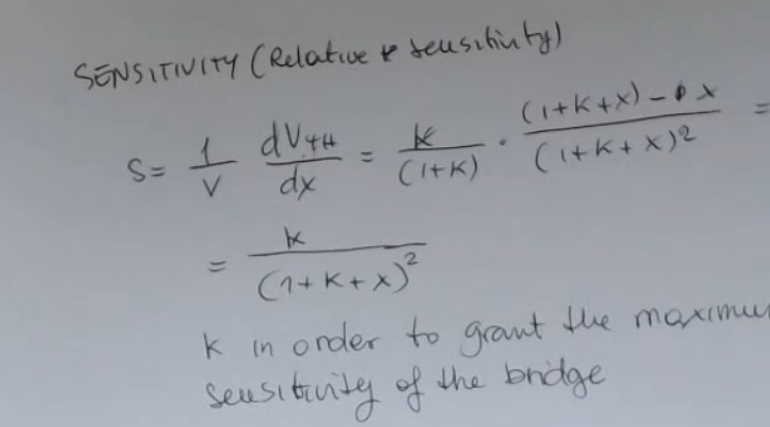 SENSITIVITY (Relative sensitivity)
S = 1/V dVTH/dx = k/(1+K) · (1+K+x) - x/(1+K+x)² =
= k/(1+K+x)²
K in order to grant the maximum
sensitivity of the bridge